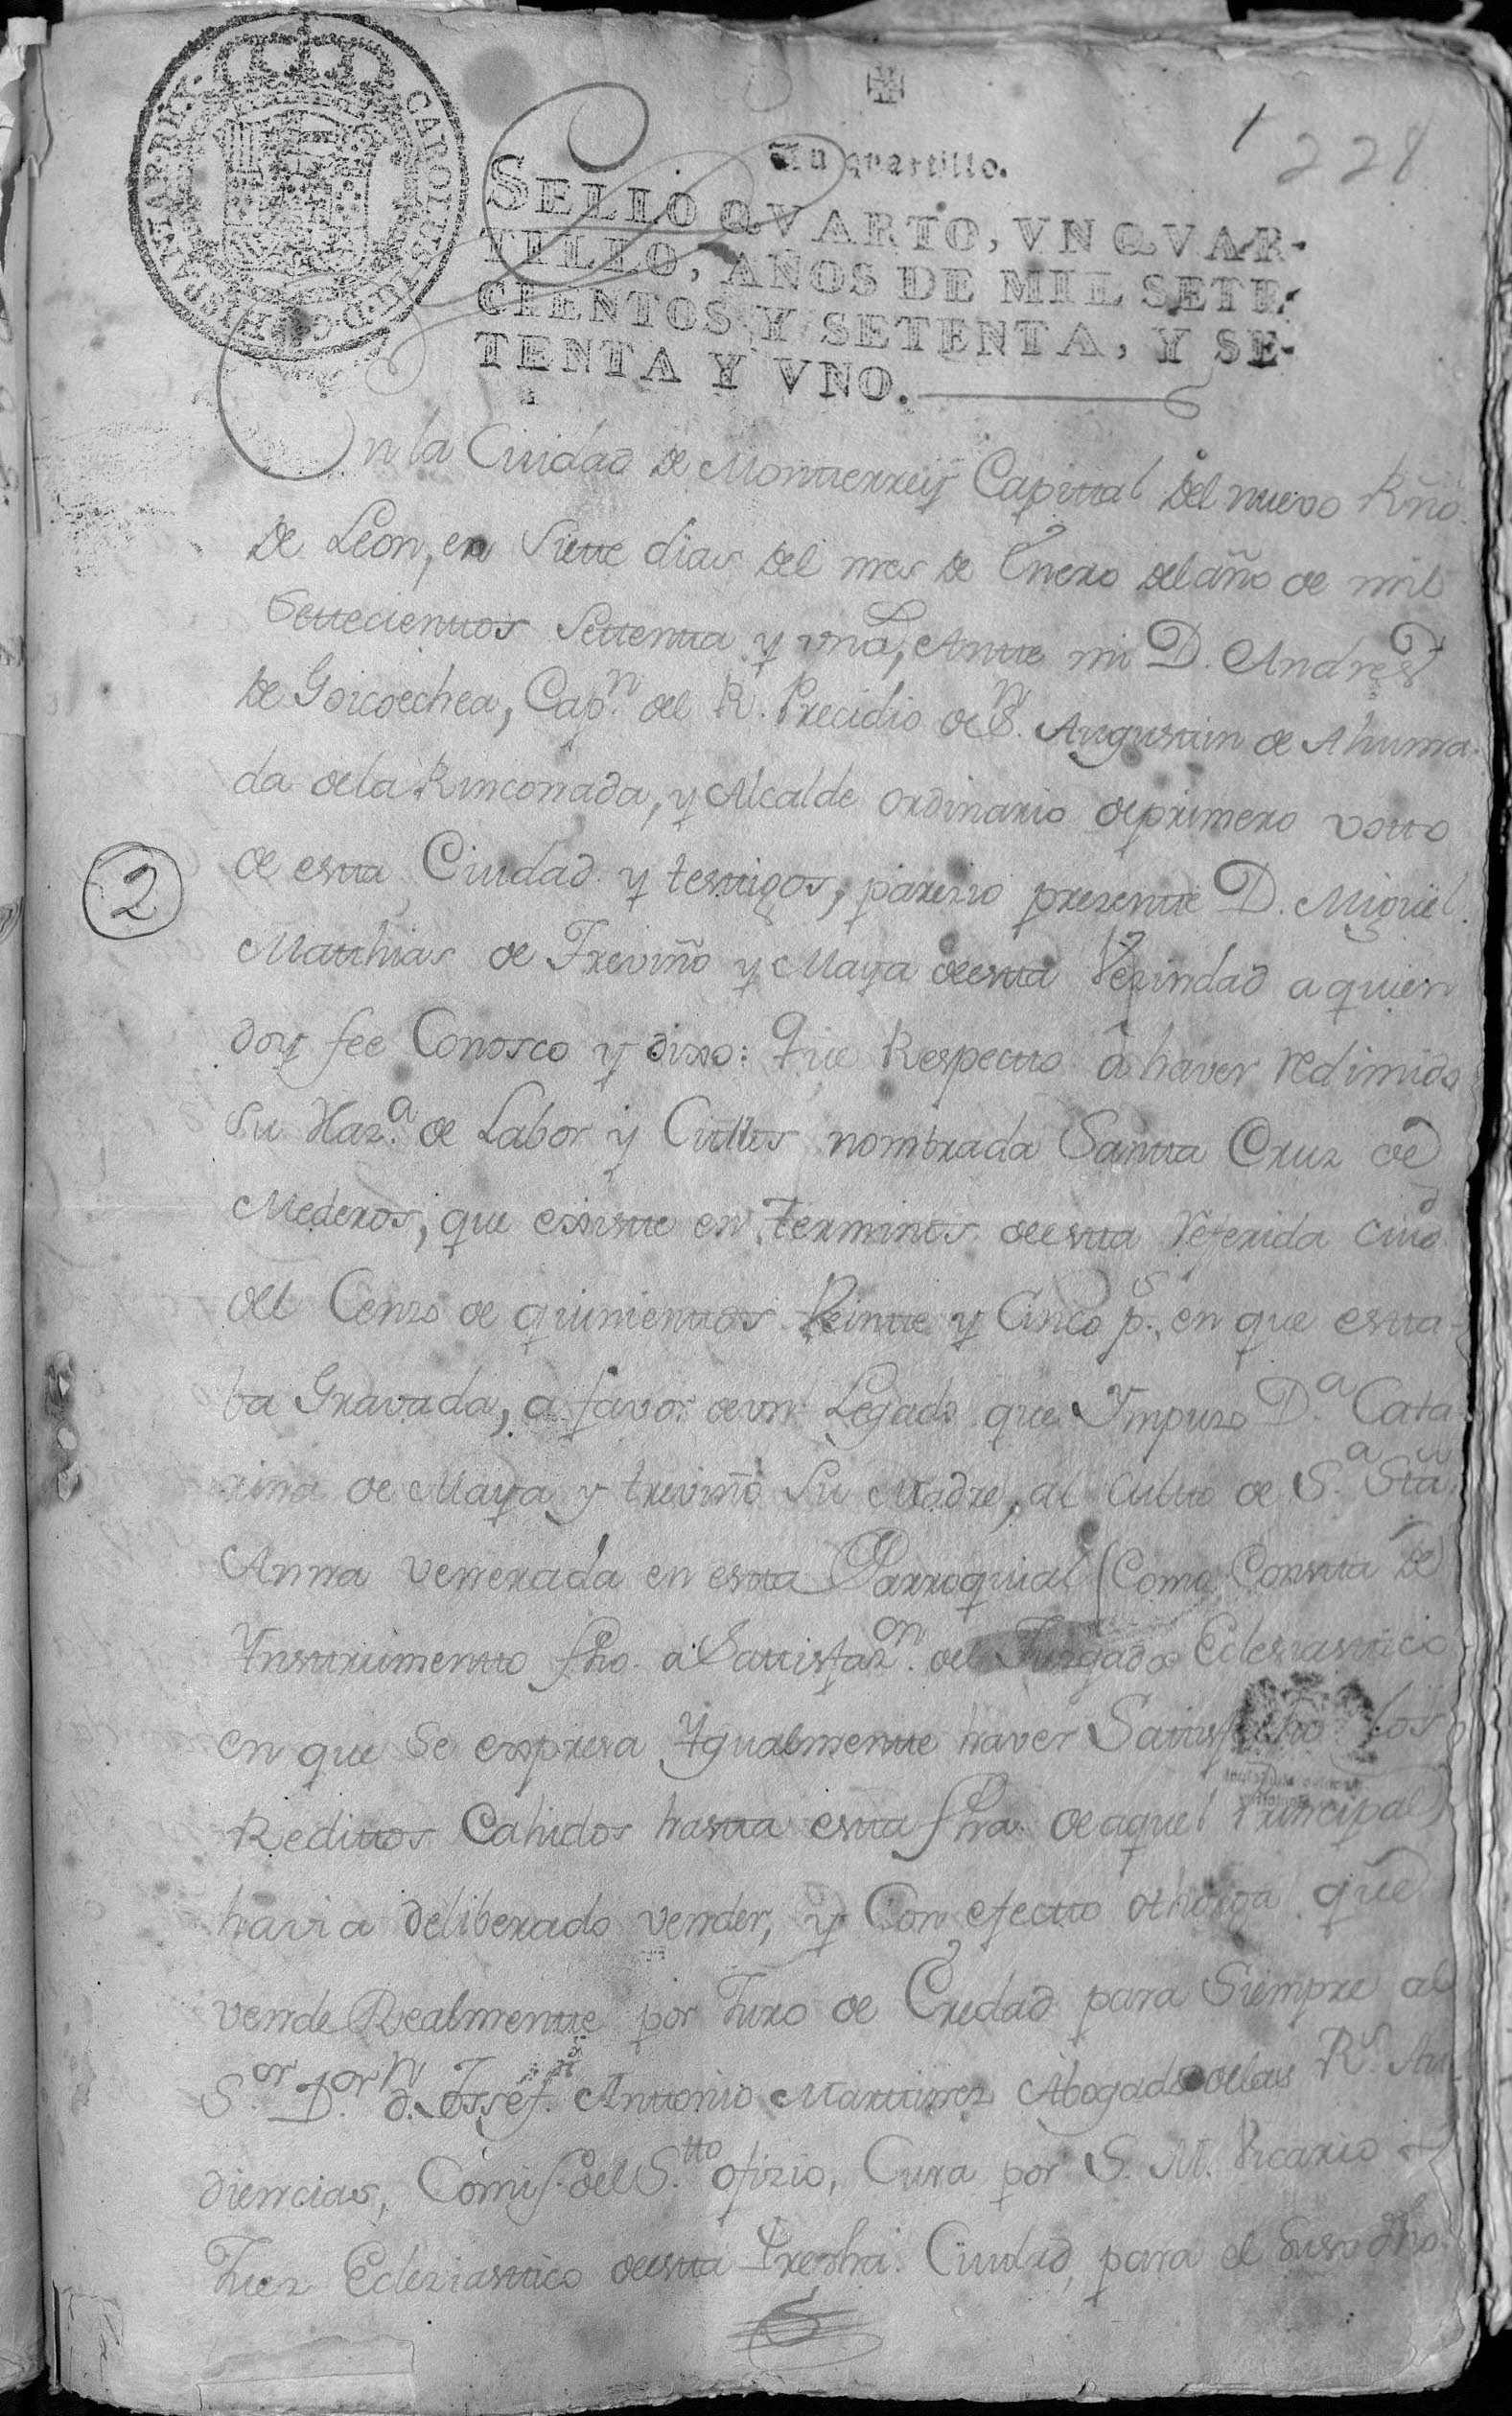 1 228
Un quartillo.
SELLO QVARTO, VN QVAR-
TILLO, AÑOS DE MIL SETE-
CIENTOS Y SETENTA, Y SE-
TENTA Y VNO.
CAROLUS III D G HISPANIAR REX
En la Ciudad de Monterrey Capital del nuevo Rño.
de Leon, en Siette dias del mes de Enero del año de mil
Settecienttos Settentta y vno, Antte mi D. Andres
de Goicoechea, Capn. del R. Precidio de Sn. Augustin de Ahuma-
da de la Rinconada, y Alcalde ordinario de primero votto
de estta Ciudad y testtigos, parezio presentte D. Miguel
Matthias de Treviño y Maya de estta Vezindad a quien
doy fee Conosco y dixo: Que Respectto â haver redimido
Su Haza. de Labor y Cittios nombrada Santta Cruz de
Mederos, que existte en terminos de estta referida Ciud.
del Cenzo de quinienttos Veintte y Cinco ps. en que estta-
ba Gravada, a favor de un Legado que Ympuso Da. Cata-
rina de Maya y treviño Su Madre, al Cultto de Sa. Sta.
Anna venerada en estta Parroquial (Como Constta de
Ynstrumentto fho. a Sattisfazon. del Juzgado Eclesiasttico
en que Se expresa Ygualmentte haver Sattisfecho los
Redittos Cahidos hastta estta fha. de aquel Principal)
havia deliberado vender, y Con efectto othorga que
vende Realmentte por Juro de Eredad para Siempre al
Sor. Dor. dn. Jossef Anttonio Marttinez Abogado de las Rs. Au-
diencias, Comis. del Stto. ofizio, Cura por S. M. Vicario
Juez Ecleziasttico de estta Preshã. Ciudad, para el Suso dho.
2